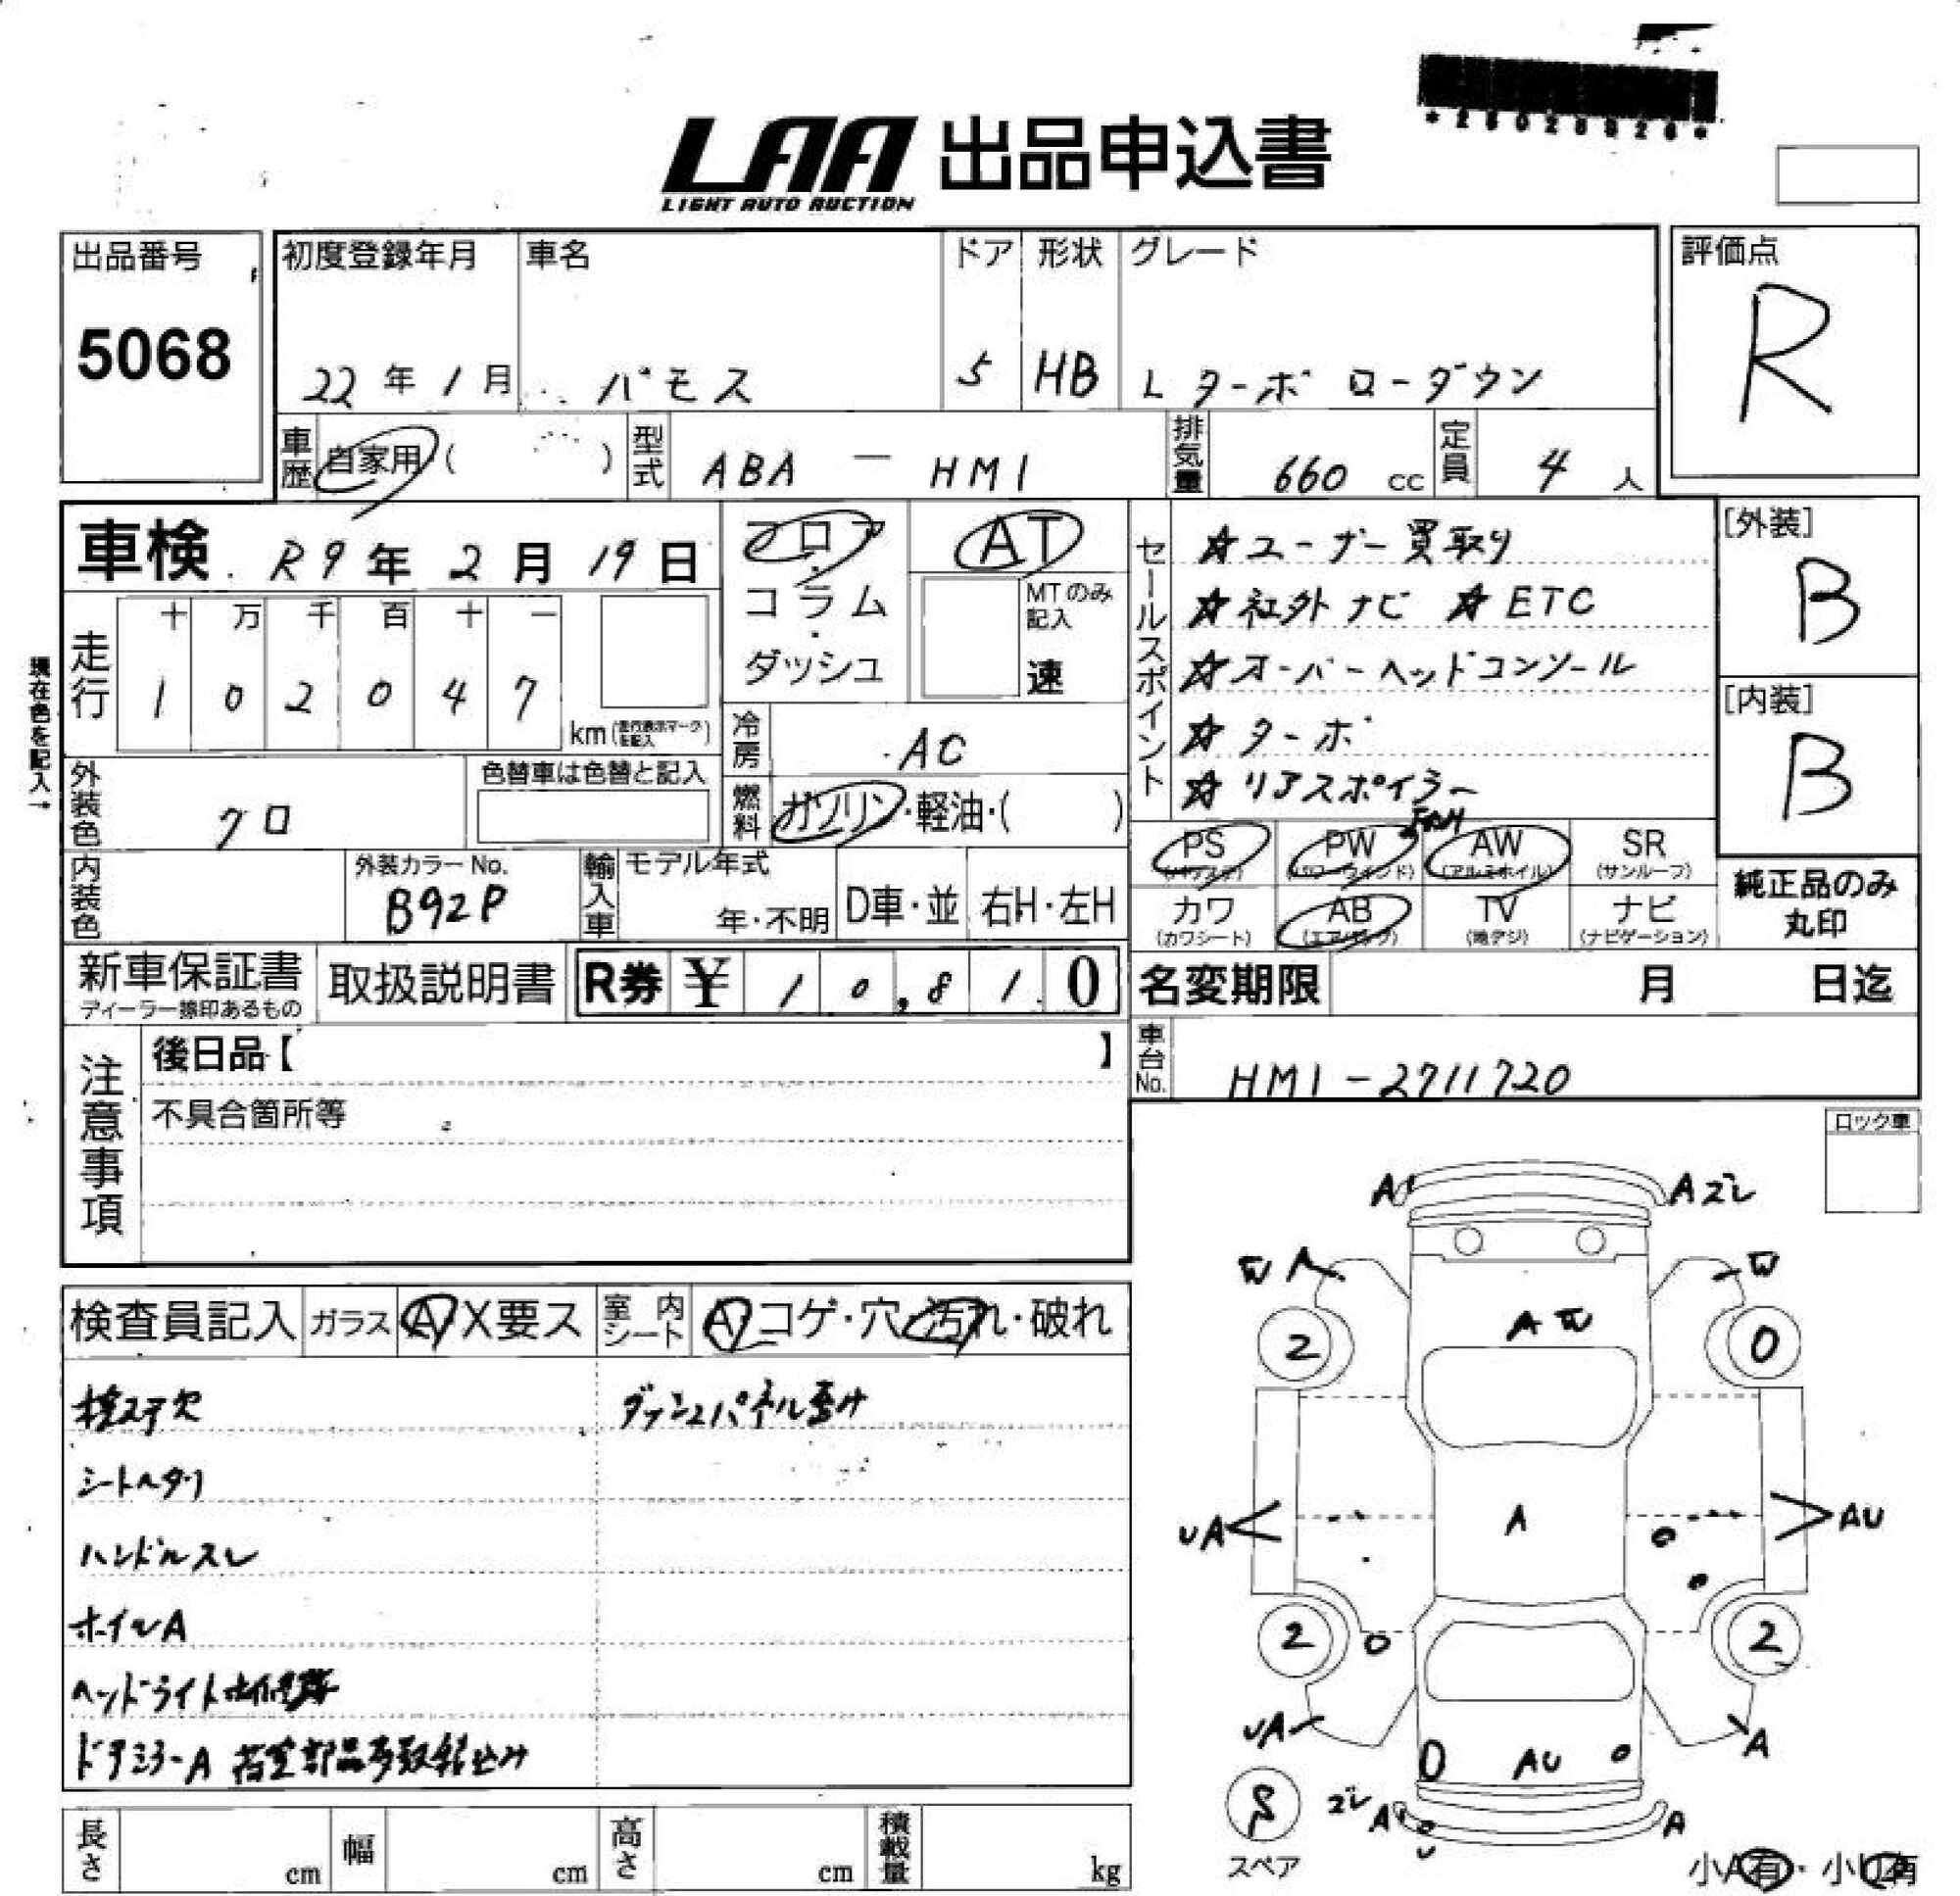 LAA 出品申込書
LIGHT AUTO AUCTION
出品番号
5068
初度登録年月
22年1月
車名
バモス
ドア
5
形状
HB
グレード
L ターボ ローダウン
評価点
R
車歴 自家用 ( )
型式 ABA - HM1
排気量 660 cc
定員 4 人
車検 R9年2月19日
フロア・コラム・ダッシュ
AT
MTのみ記入
速
現在色を記入→
走行
十 万 千 百 十 一
1 0 2 0 4 7
km
冷房 AC
外装色 クロ
色替車は色替と記入
燃料 ガソリン・軽油・( )
内装色
外装カラーNo.
B92P
輸入車
モデル年式
年・不明
D車・並
右H・左H
セールスポイント
☆ユーザー買取り
☆社外ナビ ☆ETC
☆オーバーヘッドコンソール
☆ターボ
☆リアスポイラー
[外装]
B
[内装]
B
PS
PW (パワーウインド)
AW (アルミホイル)
SR (サンルーフ)
カワ (カワシート)
AB (エアバッグ)
TV (地デジ)
ナビ (ナビゲーション)
純正品のみ丸印
新車保証書
ディーラー捺印あるもの
取扱説明書
R券 ¥ 10,810
名変期限 月 日迄
車台No. HM1-2711720
注意事項
後日品【 】
不具合箇所等
ロック車
検査員記入
ガラス A・X要ス
室内シート A・コゲ・穴・汚れ・破れ
検ステ欠
ダッシュパネル
シートヘタリ
ハンドルスレ
ホイルA
ヘッドライト
ドアミラーA
A
Aズレ
A
2
0
UA
A
AU
2
2
UA
AU
A
スペア
ズレ A
A
小A有・小U有
長さ cm
幅 cm
高さ cm
積載量 kg